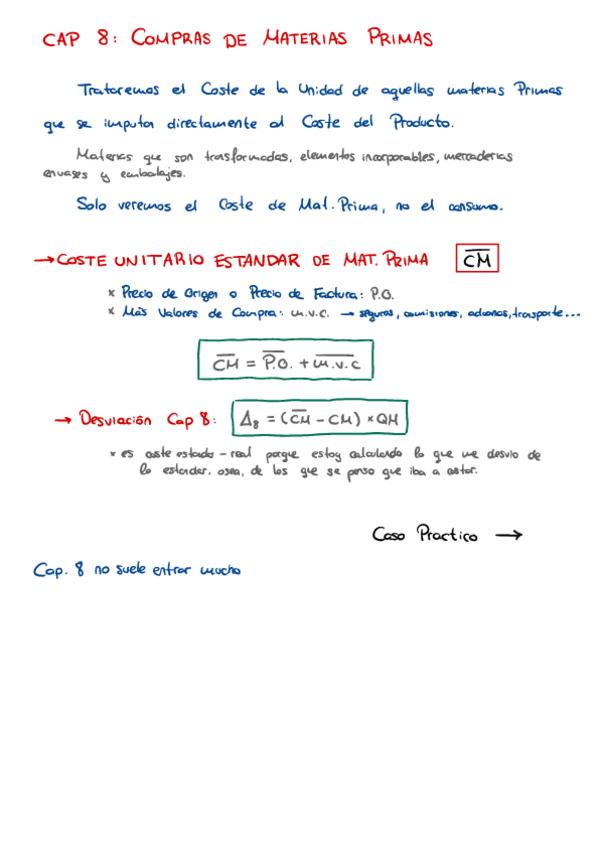 CAP 8: COMPRAS DE MATERIAS PRIMAS
Trataremos el Coste de la Unidad de aquellas materias Primas
que se imputan directamente al Coste del Producto.
Materias que son transformadas, elementos incorporables, mercaderias
envases y embalajes.
Solo veremos el Coste de Mat. Prima, no el consumo.
→ COSTE UNITARIO ESTANDAR DE MAT. PRIMA C̅M̅
* Precio de Origen o Precio de Factura: P.O.
* Más Valores de Compra: m.v.c. → seguros, comisiones, aduanas, transporte...
C̅M̅ = P̅.O̅. + m̅.v̅.c̅
→ Desviación Cap 8: Δ₈ = (C̅M̅ - CM) × QM
* es coste estandar - real porque estoy calculando lo que me desvio de
lo estandar, osea, de los que se penso que iba a costar.
Caso Practico →
Cap. 8 no suele entrar mucho